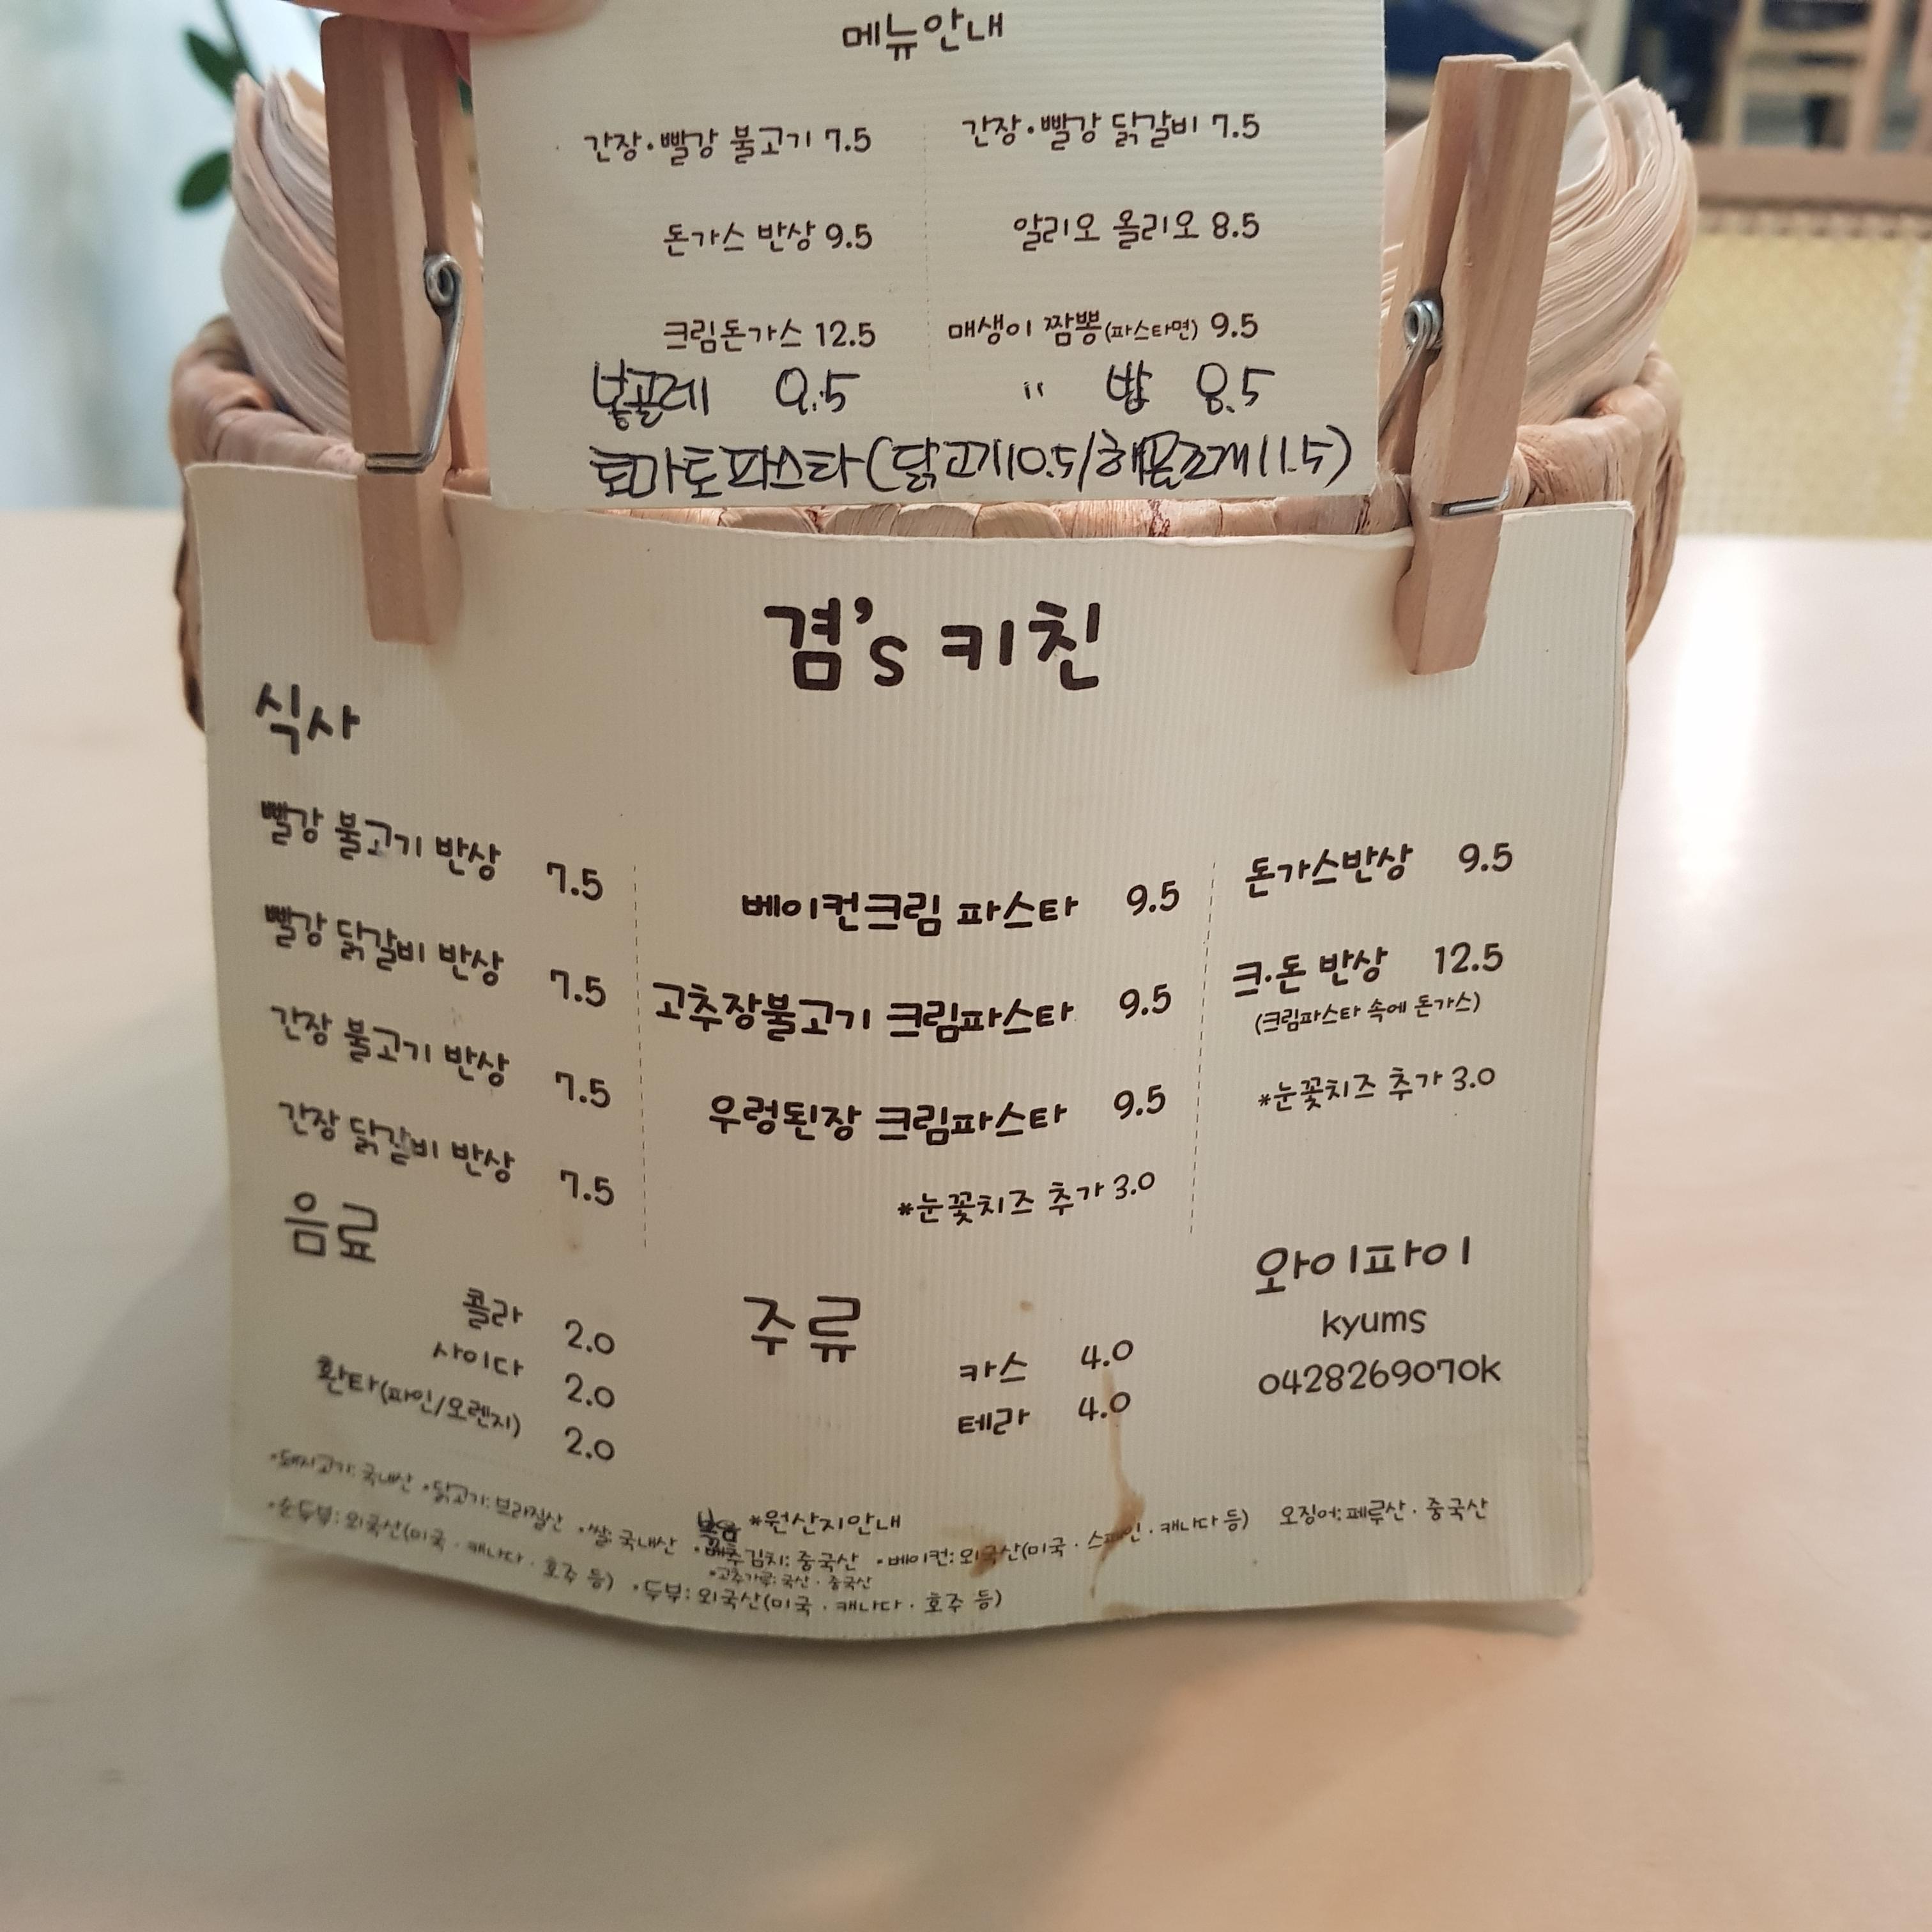 메뉴안내
간장·빨강 불고기 7.5
간장·빨강 닭갈비 7.5
돈가스 반상 9.5
알리오 올리오 8.5
크림돈가스 12.5
매생이 짬뽕(파스타면) 9.5
봉골레 9.5
" 밥 8.5
토마토파스타(닭고기10.5/해물조개11.5)
겸's 키친
식사
빨강 불고기 반상 7.5
빨강 닭갈비 반상 7.5
간장 불고기 반상 7.5
간장 닭갈비 반상 7.5
베이컨크림 파스타 9.5
고추장불고기 크림파스타 9.5
우렁된장 크림파스타 9.5
*눈꽃치즈 추가 3.0
돈가스반상 9.5
크·돈 반상 12.5
(크림파스타 속에 돈가스)
*눈꽃치즈 추가 3.0
음료
콜라 2.0
사이다 2.0
환타(파인/오렌지) 2.0
주류
카스 4.0
테라 4.0
와이파이
kyums
0428269070k
*원산지안내
•돼지고기: 국내산 •닭고기: 브라질산 •쌀: 국내산 볶음 •배추김치: 중국산 •베이컨: 외국산(미국·스페인·캐나다 등) 오징어: 페루산·중국산
•고추가루: 국산·중국산
•순두부: 외국산(미국·캐나다·호주 등) •두부: 외국산(미국·캐나다·호주 등)